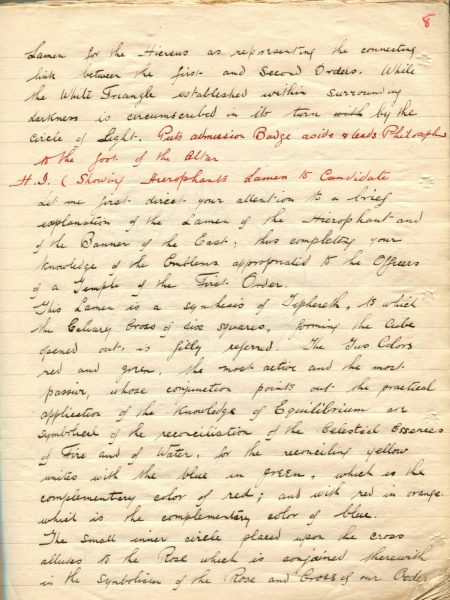 8
Lamen for the Hiereus as representing the connecting
link between the first and Second Orders. While
the White Triangle established within surrounding
darkness is circumscribed in its turn with by the
circle of Light. Puts admission Badge aside & leads Philosophus
to the foot of the Altar
H.I. (Showing Hierophants Lamen to Candidate
Let me first direct your attention to a brief
explanation of the Lamen of the Hierophant and
of the Banner of the East, thus completing your
knowledge of the Emblems appropriated to the Officers
of a Temple of the First Order.
This Lamen is a synthesis of Tiphereth, to which
the Calvary Cross of six squares, forming the Cube
opened out is fitly referred. The Two Colors
red and green, the most active and the most
passive, whose conjunction points out the practical
application of the knowledge of Equilibrium are
symbolical of the reconciliation of the Celestial Essences
of Fire and of Water, for the reconciling yellow
unites with the blue in green, which is the
complementary color of red; and with red in orange
which is the complementary color of blue.
The small inner circle placed upon the cross
alludes to the Rose which is conjoined therewith
in the symbolism of the Rose and Cross of our Order